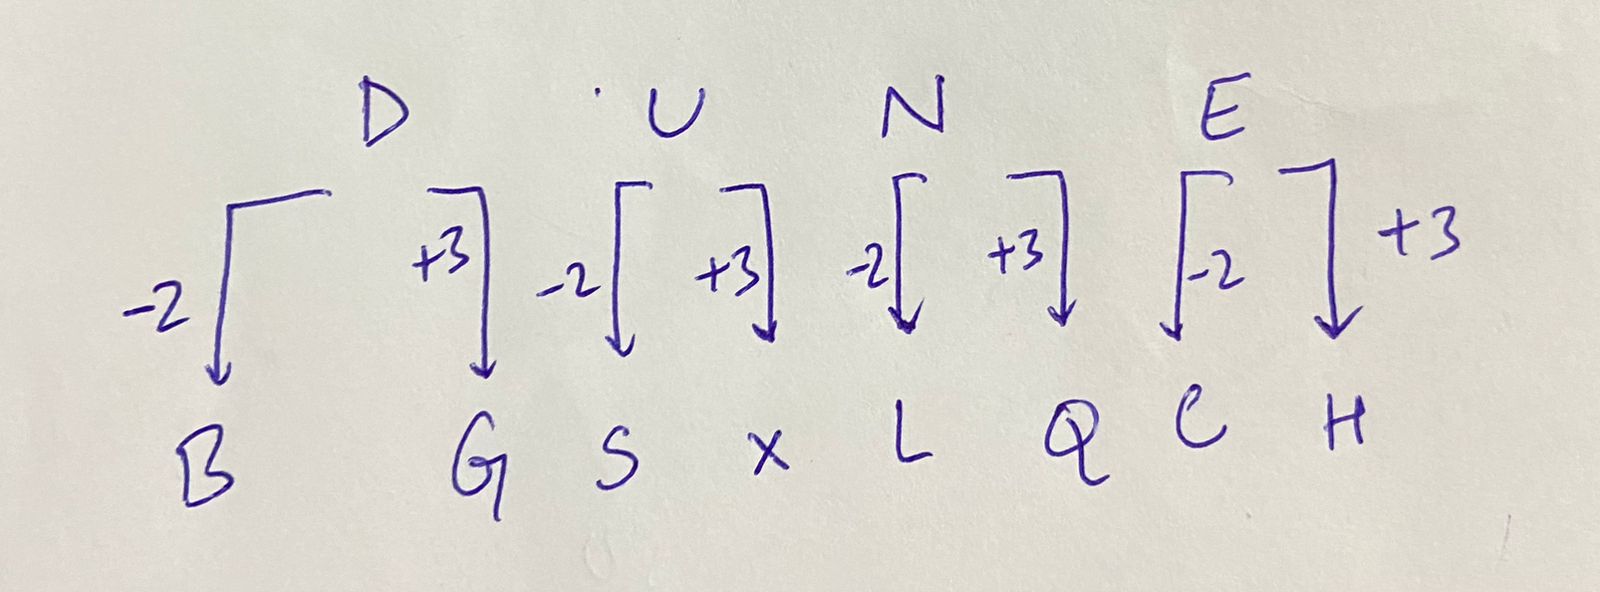 D U N E
-2 +3 -2 +3 -2 +3 -2 +3
B G S X L Q C H